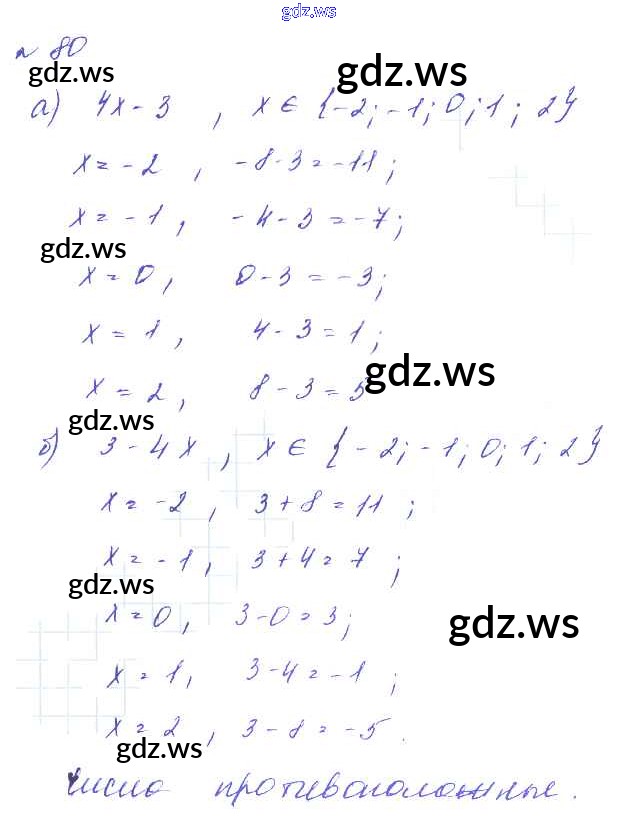 gdz.ws
№ 80
gdz.ws gdz.ws
а) 4x - 3 , x ∈ {-2; -1; 0; 1; 2}
x = -2 , -8-3 = -11;
x = -1 , -4-3 = -7;
gdz.ws
x = 0 , 0-3 = -3;
x = 1 , 4-3 = 1;
gdz.ws
x = 2 , 8-3 = 5
gdz.ws
б) 3 - 4x , x ∈ {-2; -1; 0; 1; 2}
x = -2 , 3+8 = 11 ;
x = -1 , 3+4 = 7 ;
gdz.ws
x = 0 , 3-0 = 3;
gdz.ws
x = 1 , 3-4 = -1 ;
x = 2 , 3-8 = -5 .
gdz.ws
Числа противоположные.